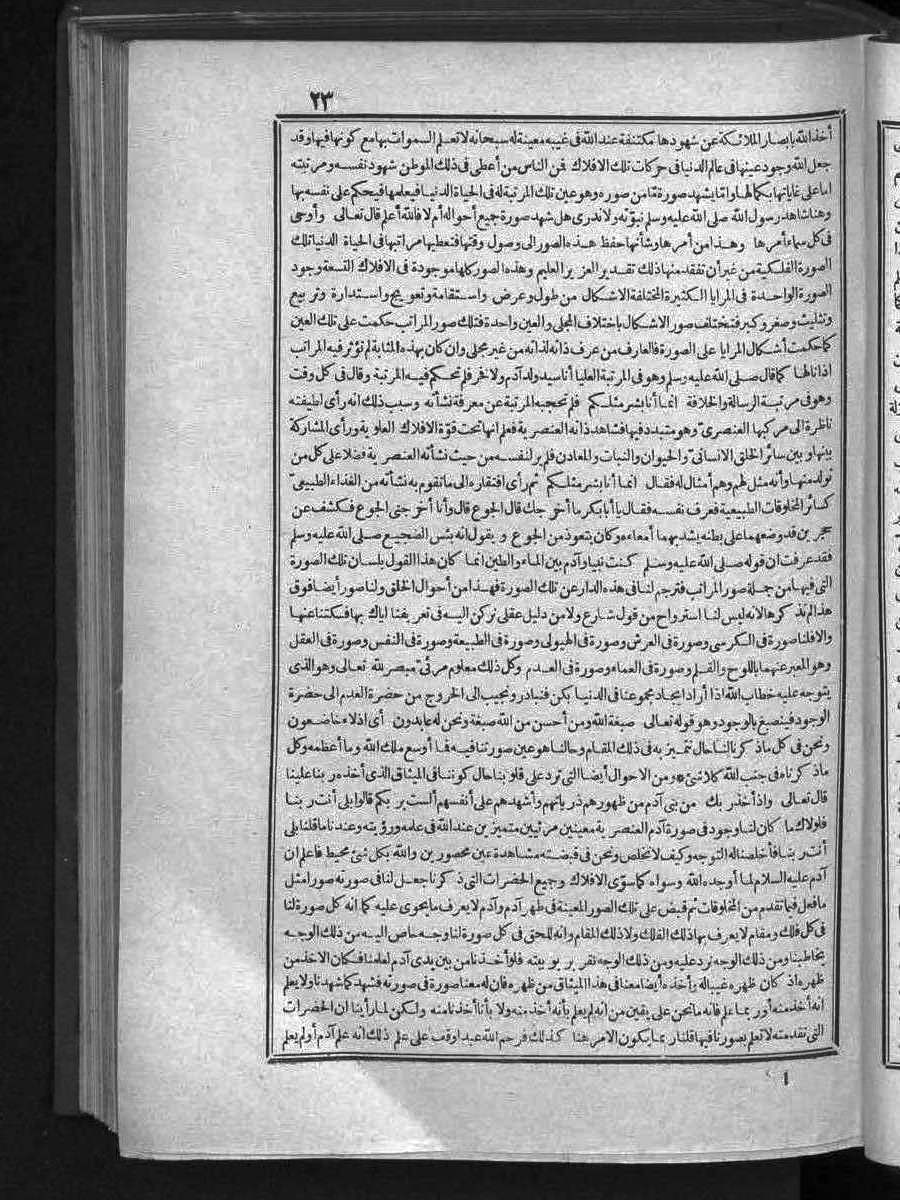 ٢٣
أخذ الله بابصار الملائكة عن شهودها مكتنفة عند الله فى غيبه معينة له سبحانه لا تعلم السموات بها مع كونها فيها وقد
جعل الله وجود عينها فى عالم الدنيا فى حركات تلك الافلاك فمن الناس من أعطى فى ذلك الموطن شهود نفسه ومرتبته
اما على غاياتها بكمالها واما يشهد صورة مّا من صوره وهو عين تلك المرتبة له فى الحياة الدنيا فيعلمها فيحكم على نفسه بها
وهنا شاهد رسول الله صلى الله عليه وسلم نبوّته ولا ندرى هل شهد صورة جميع أحواله أم لا فالله أعلم قال تعالى وأوحى
فى كل سماء أمرها وهذا من أمرها وشأنها حفظ هذه الصور الى وصول وقتها فتعطيها مراتبها فى الحياة الدنيا تلك
الصورة الفلكية من غير أن تفقد منها ذلك تقدير العزيز العليم وهذه الصور كلها موجودة فى الافلاك التسعة وجود
الصورة الواحدة فى المرايا الكثيرة المختلفة الاشكال من طول وعرض واستقامة وتعويج واستدارة وتربيع
وتثليث وصغر وكبر فتختلف صور الاشكال باختلاف المجلى والعين واحدة فتلك صور المراتب حكمت على تلك العين
كما حكمت أشكال المرايا على الصورة فالعارف من عرف ذاته لذاته من غير مجلى وان كان بهذه المثابة لم تؤثر فيه المراتب
اذا نالها كما قال صلى الله عليه وسلم وهو فى المرتبة العليا أنا سيد ولد آدم ولا فخر فلم تحكم فيه المرتبة وقال فى كل وقت
وهو فى مرتبة الرسالة والخلافة انما أنا بشر مثلكم فلم تحجبه المرتبة عن معرفة نشأته وسبب ذلك انه رأى لطيفته
ناظرة الى مركبها العنصرى وهو متبدد فيها فشاهد ذاته العنصرية فعلم انها تحت قوّة الافلاك العلوية ورأى المشاركة
بينها وبين سائر الخلق الانسانى والحيوان والنبات والمعادن فلم ير لنفسه من حيث نشأته العنصرية فضلا على كل من
تولد منها وأنه مثل لهم وهم أمثال له فقال انما أنا بشر مثلكم ثم رأى افتقاره الى ما تقوم به نشأته من الغذاء الطبيعى
كسائر المخلوقات الطبيعية فعرف نفسه فقال يا أبا بكر ما أخرجك قال الجوع قال وأنا أخرجنى الجوع فكشف عن
حجرين قد وضعهما على بطنه يشد بهما أمعاءه وكان يتعوذ من الجوع ويقول انه بئس الضجيع صلى الله عليه وسلم
فقد عرفت ان قوله صلى الله عليه وسلم كنت نبيا وآدم بين الماء والطين انما كان هذا القول بلسان تلك الصورة
التى فيها من جملة صور المراتب فترجم لنا فى هذه الدار عن تلك الصورة فهذا من أحوال الخلق ولنا صور أيضا فوق
هذا لم نذكرها لانه ليس لنا استرواح من قول شارع ولا من دليل عقلى نركن اليه فى تعريفنا اياك بها فسكتنا عنها
والا فلنا صورة فى الكرسى وصورة فى العرش وصورة فى الهيولى وصورة فى الطبيعة وصورة فى النفس وصورة فى العقل
وهو المعبر عنهما باللوح والقلم وصورة فى العماء وصورة فى العدم وكل ذلك معلوم مرئى مبصر لله تعالى وهو الذى
يتوجه عليه خطاب الله اذا أراد ايجاد مجموعنا فى الدنيا بكن فنبادر ونجيب الى الخروج من حضرة العدم الى حضرة
الوجود فينصبغ بالوجود وهو قوله تعالى صبغة الله ومن أحسن من الله صبغة ونحن له عابدون أى اذلاء خاضعون
ونحن فى كل ما ذكر نالنا حال تتميز به فى ذلك المقام وحالنا هو عين صورتنا فيه فما أوسع ملك الله وما أعظمه وكل
ما ذكرناه فى جنب الله كلا شئ * ومن الاحوال أيضا التى ترد على قلوبنا حال كوننا فى الميثاق الذى أخذه ربنا علينا
قال تعالى واذ أخذ ربك من بنى آدم من ظهورهم ذرياتهم وأشهدهم على أنفسهم ألست بربكم قالوا بلى أنت ربنا
فلولاك ما كان لنا وجود فى صورة آدم العنصرية معينين مرئيين متميزين عند الله فى علمه ورؤيته وعندنا ما قلنا بلى
أنت ربنا فأخلصنا له التوجه وكيف لا نخلص ونحن فى قبضته مشاهدة عين محصورين والله بكل شئ محيط فاعلم ان
آدم عليه السلام لما أوجده الله وسواه كما سوّى الافلاك وجميع الحضرات التى ذكرنا جعل لنا فى صورته صورا مثل
ما فعل فيما تقدم من المخلوقات ثم قبض على تلك الصور المعينة فى ظهر آدم وآدم لا يعرف ما يحوى عليه كما انه كل صورة لنا
فى كل فلك ومقام لا يعرف بها ذلك الفلك ولا ذلك المقام وانه للحق فى كل صورة لنا وجه خاص اليه من ذلك الوجه
يخاطبنا ومن ذلك الوجه نرد عليه ومن ذلك الوجه نقر بربوبيته فلو أخذنا من بين يدى آدم لعلمنا فكان الاخذ من
ظهره اذ كان ظهره غيبا له وأخذه أيضا معنا فى هذا الميثاق من ظهره فان له معنا صورة فى صورته فشهد كما شهدنا ولا يعلم
انه أخذ منه أو ربما علم فانه ما نحن على يقين من انه لم يعلم بأنه أخذ منه ولا بأنا أخذنا منه ولكن لما رأينا ان الحضرات
التى تقدمته لا تعلم بصورنا فيها قلنا ربما يكون الامر هنا كذلك فرحم الله عبدا وقف على علم ذلك انه علم آدم أولم يعلم